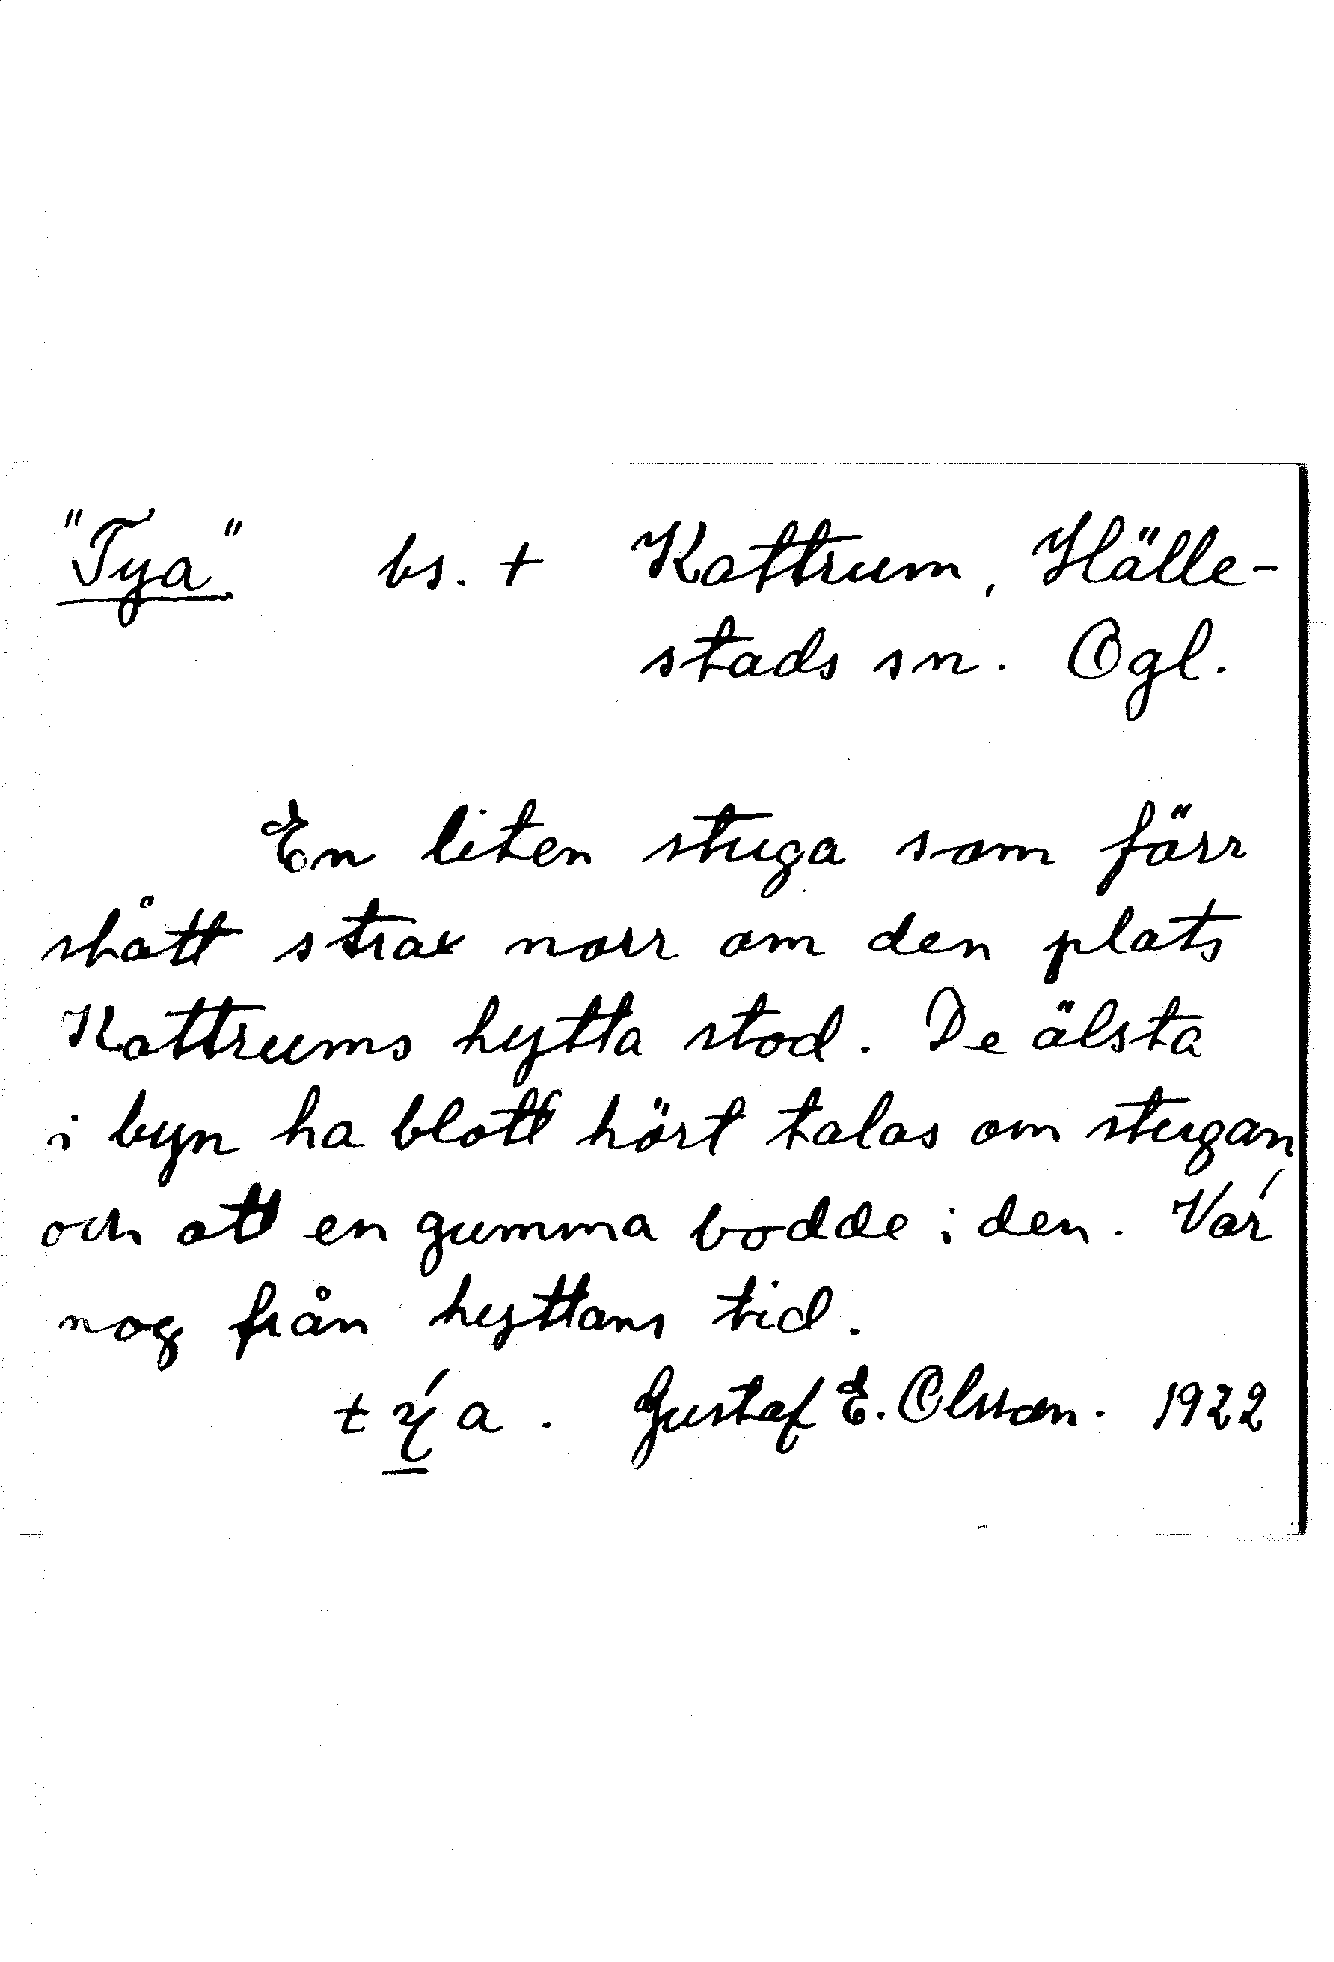 "Tya" bs. + Kattrum, Hälle-
stads sn. Ögl.
En liten stuga som förr
stått strax norr om den plats
Kattrums hytta stod. De älsta
i byn ha blott hört talas om stugan
och att en gumma bodde i den. Var
nog från hyttans tid.
t ý a. Gustaf E. Olsson. 1922